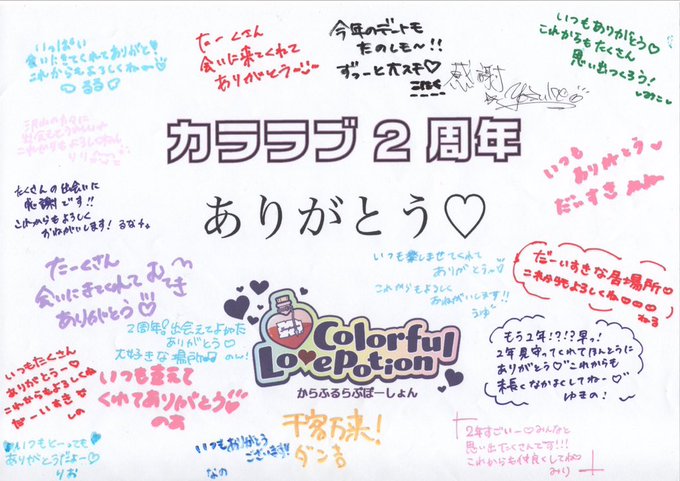 いっぱい
会いにきてくれてありがと!
これからもよろしくねー♡
るる
たーくさん
会いに来てくれて
ありがとう
今年のデートも
たのしも〜!!
ずっーとオスキ♡
感謝
いつもありがとう♡
これからもたくさん
思い出つくろう!
みこ
カララブ2周年
ありがとう♡
これからもよろしくねん
りり
いつも
ありがとう
だいすき
たくさんの出会いに
感謝です!!
これからもよろしく
おねがいします! るなチょ
たーくさん
会いにきてくれて
ありがとう♡
いつも楽しませてくれて
ありがとうー♡
これからもよろしく
おねがいします!!
うゆ
だーいすきな居場所♡
これからもよろしくね♡♡♡
ねる
2周年!出会えてよかった
ありがとう♡
大好きな場所 のん!
Colorful
LovePotion
からふるらぶぽーしょん
もう2年!?!?早っ!
2年見守ってくれてほんとうに
ありがとう♡これからも
末長くなかよくしてねー♡
ゆきの!
いつもたくさん
ありがとうー♡
これからもよろしくね
だーいすき
しの
いつも支えて
くれてありがとう♡
のあ
千客万来!
ダン吉
2年すごいー♡みんなと
思い出たくさんです!!!
これからも仲良くしてね♡
みり
いつもとーっても
ありがとうだよー♡
りお
いつもありがとう
ございます!!
なの